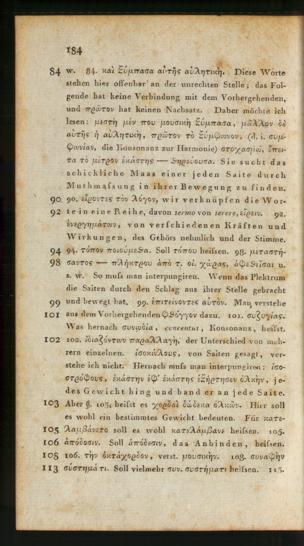 184
84 w. 84. καὶ Ξύμπασα αὐτῆς αὐλητικη. Diese Worte
stehen hier offenbar an der unrechten Stelle; das Fol-
gende hat keine Verbindung mit dem Vorhergehenden,
und πρῶτον hat keinen Nachsatz. Daher möchte ich
lesen: μεστὴ μὲν που μουσικὴ Ξύμπασα, μᾶλλον δὲ
αὐτῆς ἡ αὐλητικὴ, πρῶτον τὸ Ξύμφωνον, (d. i. συμ-
φωνίαν, die Konsonanz zur Harmonie) στοχασμῷ, ἔπει-
τα τὸ μέτρον ἑκάστης — Θηρεύουσα. Sie sucht das
schickliche Maas einer jeden Saite durch
Muthmaſsung in ihrer Bewegung zu finden.
90 90. εἴροντες τὸν λόγον, wir verknüpfen die Wor-
92 te in eine Reihe, davon sermo von serere, εἴρειν. 92.
ἐνεργημάτων, von verschiedenen Kräften und
Wirkungen, des Gehörs nehmlich und der Stimme.
94 94. τόπον ποιούμεθα. Soll τόπου heissen. 98. μεταστή-
98 σαντος — πλήκτρου ἀπὸ τ. οἱ χώρας, ἀφεθεῖσαι u.
s. w. So muſs man interpungiren. Wenn das Plektrum
die Saiten durch den Schlag aus ihrer Stelle gebracht
99 und bewegt hat. 99. ἐπιτείνοντες αὐτόν. Man verstehe
101 aus dem Vorhergehenden φθόγγον dazu. 101. συζυγίας.
Was hernach συνῳδία, concentus, Konsonanz, heiſst.
102 102. ἰδιαζόντων παραλλαγὴ, der Unterschied von meh-
rern einzelnen. ἰσοκώλους, von Saiten gesagt, ver-
stehe ich nicht. Hernach muſs man interpungiren: ἰσο-
στρόφους, ἑκάστην ἐφ' ἑκάστης ἐξήρτησεν ὁλκὴν, je-
des Gewicht hing und band er an jede Saite.
103 Aber §. 103. heiſst es χορδαὶ δώδεκα ὁλκῶν. Hier soll
es wohl ein bestimmtes Gewicht bedeuten. Für κατε-
105 λαμβάνετο soll es wohl κατελάμβανε heiſsen. 105.
106 ἀπόδοσιν. Soll ἀπόδεσιν, das Anbinden, heiſsen.
108 106. τὴν ὀκτάχορδον, verst. μουσικήν. 108. συναφὴν
113 σύστημάτι. Soll vielmehr συν. συστήματι heiſsen. 113.